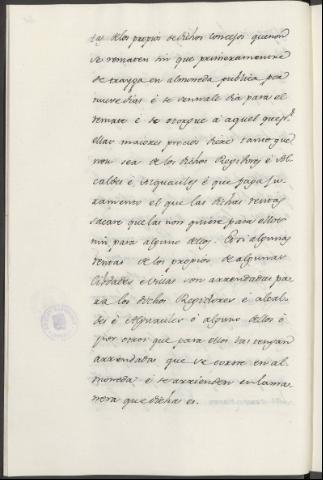 tas delos propios de dichos concejos que non
se rematen sin que primeramente
se traygan en almoneda publica por
nueve dias é se señale dia para el
remate é se otorgue á aquel que por
ellas maiores precios diere tanto que
non sea de los dichos Regidores é Al-
caldes é Alguaciles é que faga ju-
ramento el que las dichas rentas
sacare que las non quiere para ellos
nin para alguno dellos. E si algunas
rentas de los propios de algunas
Cibdades é Villas son arrendadas pa-
ra los dichos Regidores é alcal-
des é Alguaciles ó alguno dellos ó
por otros que para ellos las tengan
arrendadas que se torne en al-
moneda é se arrienden en la ma-
nera que dicha es.